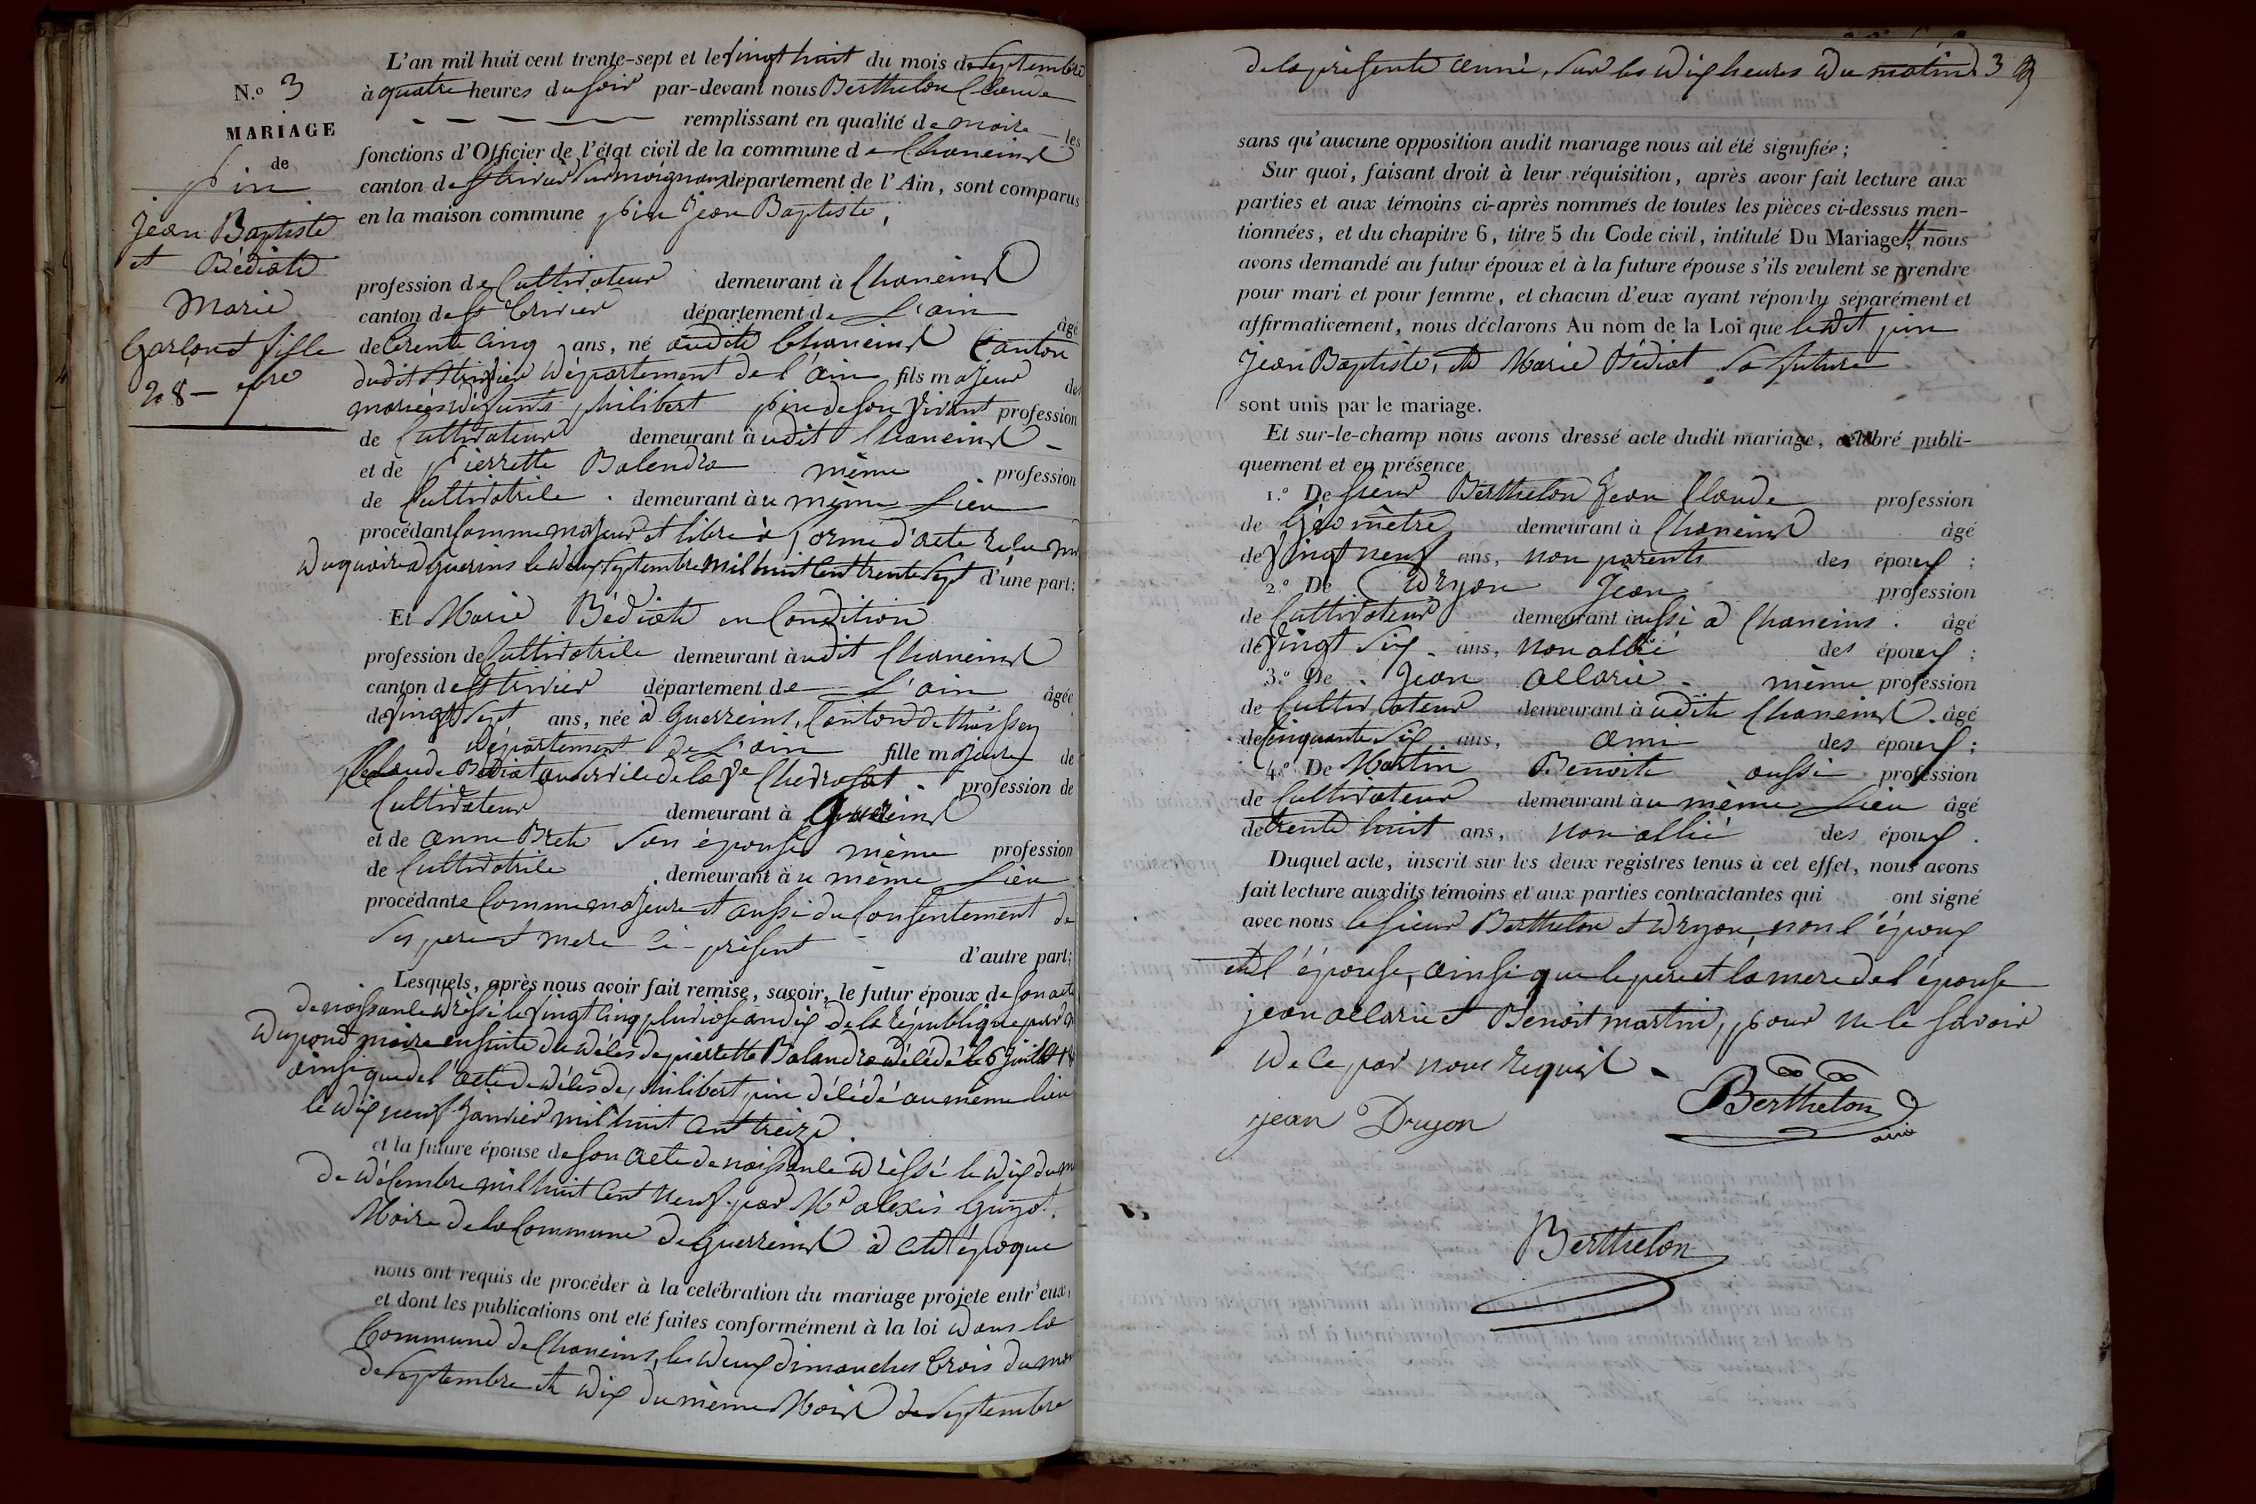 N.º 3
MARIAGE
de
pin
Jean Baptiste
et Bédiat
Marie
Garçon et fille
28 - 7bre
L'an mil huit cent trente-sept et le vingt huit du mois de Septembre
à quatre heures du soir par-devant nous Berthelon Claude
remplissant en qualité de maire les
fonctions d'Officier de l'état civil de la commune de Chaneins
canton de St trivier sur moignans département de l'Ain, sont comparus
en la maison commune pin Jean Baptiste,
profession de Cultivateur demeurant à Chaneins
canton de St trivier département de L'ain âgé
de trente cinq ans, né audit Chaneins Canton
dudit St trivier département de l'ain fils majeur des
mariés défunts philibert pin de son vivant profession
de Cultivateur demeurant audit Chaneins
et de pierrette Balandra même profession
de Cultivatrice . demeurant au même Lieu
procédant comme majeur et libre à forme d'acte
le deux Septembre mil huit cent trente Sept d'une part;
Et Marie Bédiat en Condition
profession de Cultivatrice demeurant audit Chaneins
canton de St trivier département de L'ain âgée
de vingt Sept ans, née à Guerreins, Canton de thoissey
département de L'ain fille majeure de
Claude Bédiat profession de
Cultivateur demeurant à Guereins
et de anne Brete son épouse même profession
de Cultivatrice demeurant au même Lieu
procédante comme majeure et aussi du consentement de
ses pere et mere ci-présent d'autre part;
Lesquels, après nous avoir fait remise, savoir, le futur époux de son acte
de naissance dressé le vingt cinq pluviose an dix de la république par
dupond maire ensuite du décès de pierrette Balandra décédé le 6 Juillet
ainsi que de l'acte de décès de philibert pin décédé au même lieu
le dix neuf Janvier mil huit cent treize
et la future épouse de son acte de naissance dressé le dix du
de décembre mil huit cent neuf par Mr alexis Guyot.
Maire de la Commune de Guerreins à cette époque
nous ont requis de procéder à la célébration du mariage projeté entr'eux,
et dont les publications ont été faites conformément à la loi dans la
Commune de Chaneins, les deux dimanches trois du mois
de Septembre et dix du même Mois de Septembre
de la présente anné, sur les dix heures du matin 3
sans qu'aucune opposition audit mariage nous ait été signifiée;
Sur quoi, faisant droit à leur réquisition, après avoir fait lecture aux
parties et aux témoins ci-après nommés de toutes les pièces ci-dessus men-
tionnées, et du chapitre 6, titre 5 du Code civil, intitulé Du Mariage, nous
avons demandé au futur époux et à la future épouse s'ils veulent se prendre
pour mari et pour femme, et chacun d'eux ayant répondu séparément et
affirmativement, nous déclarons Au nom de la Loi que ledit pin
Jean Baptiste, et Marie Bédiat sa future
sont unis par le mariage.
Et sur-le-champ nous avons dressé acte dudit mariage, célébré publi-
quement et en présence
1.º De sieur Berthelon Jean Claude profession
de Géomètre demeurant à Chaneins âgé
de vingt neuf ans, non parents des époux ;
2.º De Dryon Jean profession
de Cultivateur demeurant aussi à Chaneins . âgé
de vingt Six ans, non allié des époux ;
3.º De Jean allarie même profession
de Cultivateur demeurant audit Chaneins. âgé
de cinquante Six ans, ami des époux ;
4.º De Martin Benoite aussi profession
de Cultivateur demeurant au même Lieu âgé
de trente huit ans, non allié des époux .
Duquel acte, inscrit sur les deux registres tenus à cet effet, nous avons
fait lecture auxdits témoins et aux parties contractantes qui ont signé
avec nous le sieur Berthelon et dryon, non l'époux
et l'épouse, ainsi que le pere et la mere de l'épouse
jean allarie et Benoit martin, pour ne le savoir
de ce par nous requis.
jean Dryon
Berthelon
Berthelon